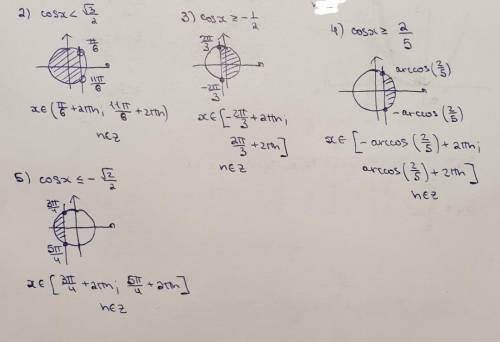 2) cosx < √3/2
π/6
11π/6
x∈(π/6 + 2πn; 11π/6 + 2πn)
n∈z
3) cosx ≥ -1/2
2π/3
-2π/3
x∈[-2π/3 + 2πn;
2π/3 + 2πn]
n∈z
4) cosx ≥ 2/5
arccos(2/5)
-arccos(2/5)
x∈[-arccos(2/5) + 2πn;
arccos(2/5) + 2πn]
n∈z
5) cosx ≤ -√2/2
3π/4
5π/4
x∈[3π/4 + 2πn; 5π/4 + 2πn]
n∈z